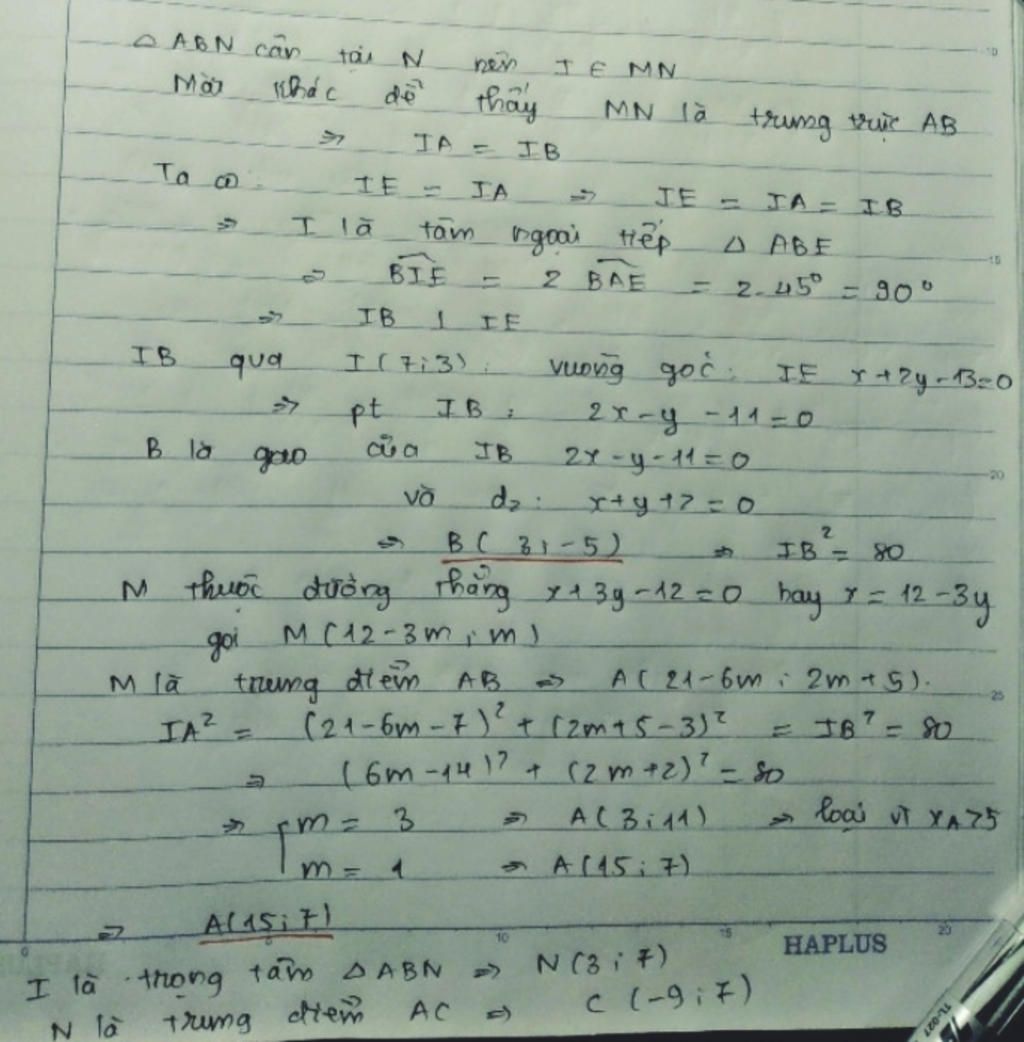 △ ABN cân tại N nên I ∈ MN
Mặt khác dễ thấy MN là trung trực AB
⇒ IA = IB
Ta có: IE = IA ⇒ IE = IA = IB
⇒ I là tâm ngoại tiếp △ ABE
⇒ BIE = 2 BAE = 2.45° = 90°
⇒ IB ⊥ IE
IB qua I(7;3). vuông góc: IE x+2y-13=0
⇒ pt IB: 2x-y-11=0
B là giao của IB 2x-y-11=0
và d₂: x+y+2=0
⇒ B(3;-5) ⇒ IB² = 80
M thuộc đường thẳng x+3y-12=0 hay x=12-3y
gọi M(12-3m;m)
M là trung điểm AB ⇒ A(21-6m;2m+5).
IA² = (21-6m-7)² + (2m+5-3)² = IB² = 80
⇒ (6m-14)² + (2m+2)² = 80
⇒ [m = 3 ⇒ A(3;11) ⇒ loại vì xA>5
m = 1 ⇒ A(15;7)
⇒ A(15;7)
HAPLUS
I là trọng tâm △ ABN ⇒ N(3;7)
N là trung điểm AC ⇒ C(-9;7)